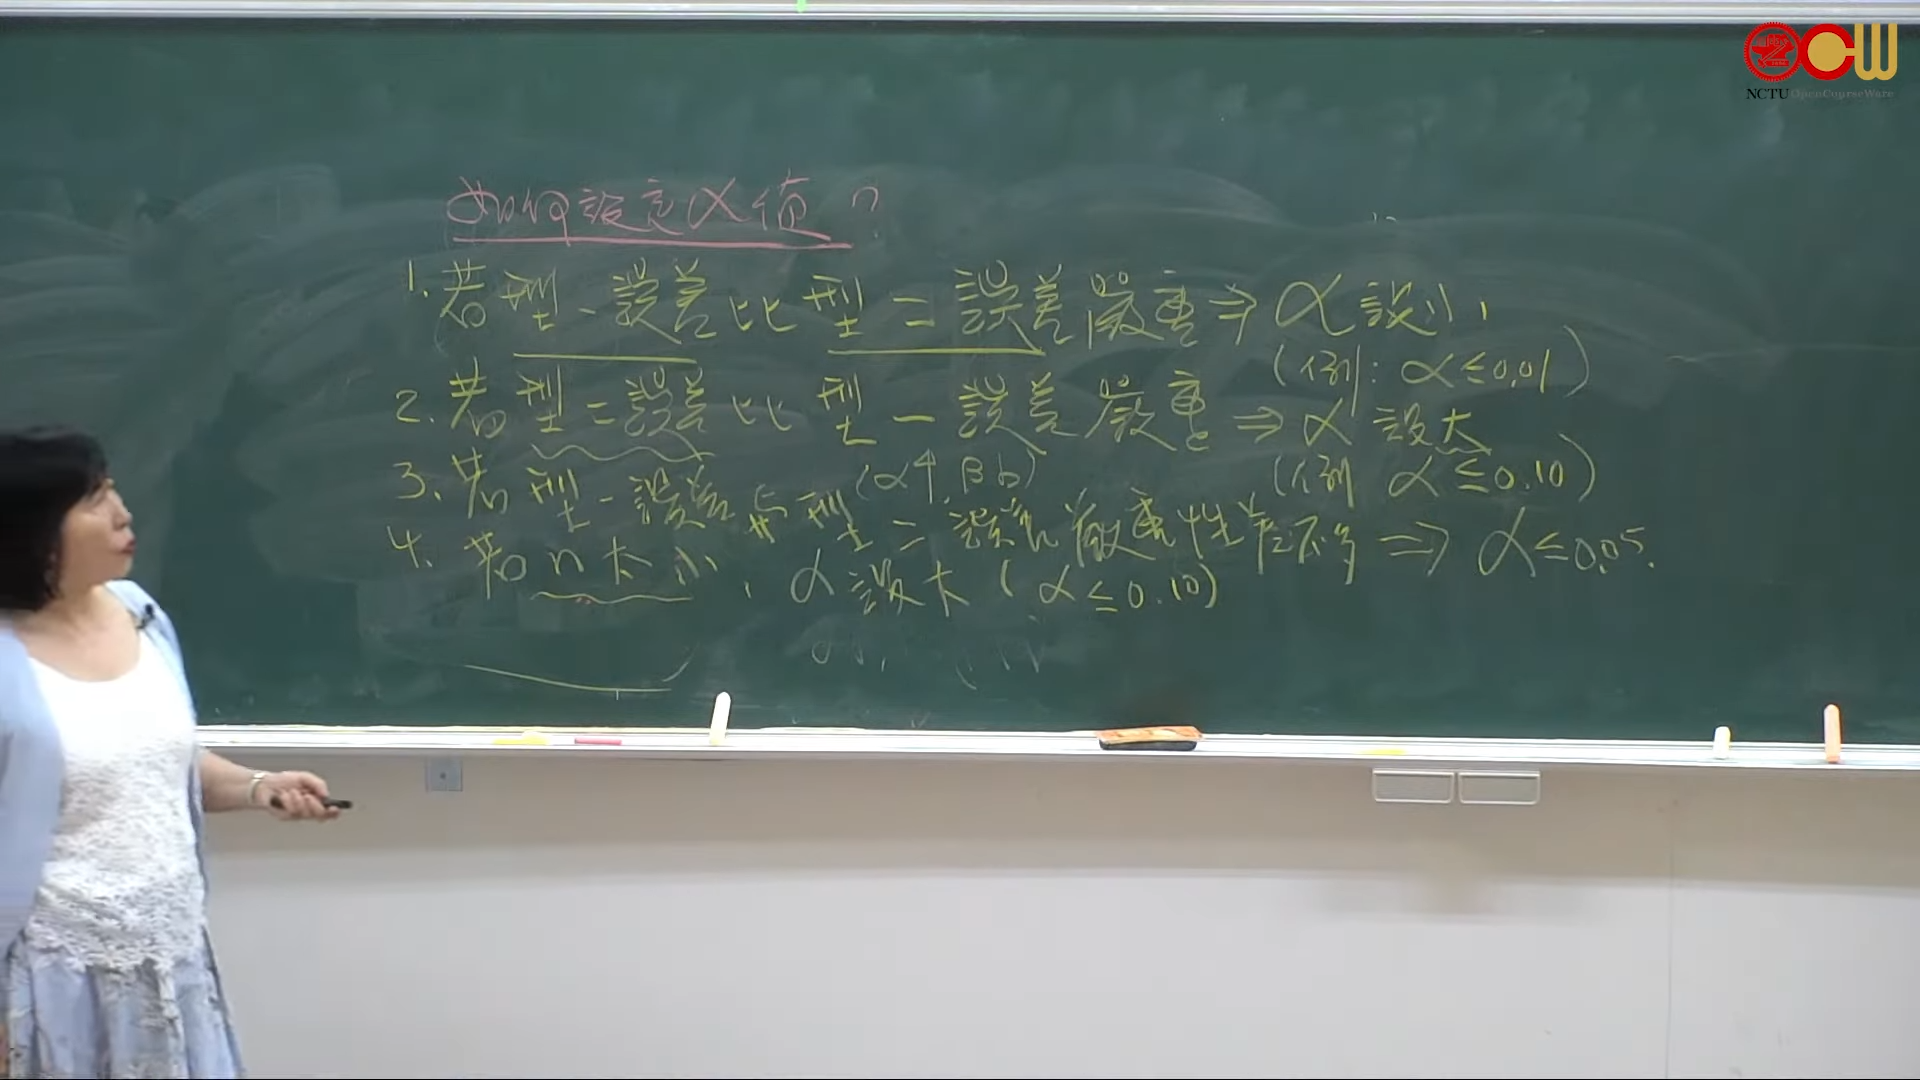 NCTU OpenCourseWare
如何設定α值?
1. 若型一誤差比型二誤差嚴重⇒α設小
(例:α≤0.01)
2. 若型二誤差比型一誤差嚴重⇒α設大
(α↑,β↓)
(例 α≤0.10)
3. 若型一誤差與型二誤差嚴重性差不多⇒α≤0.05.
4. 若n太小,α設大(α≤0.10)